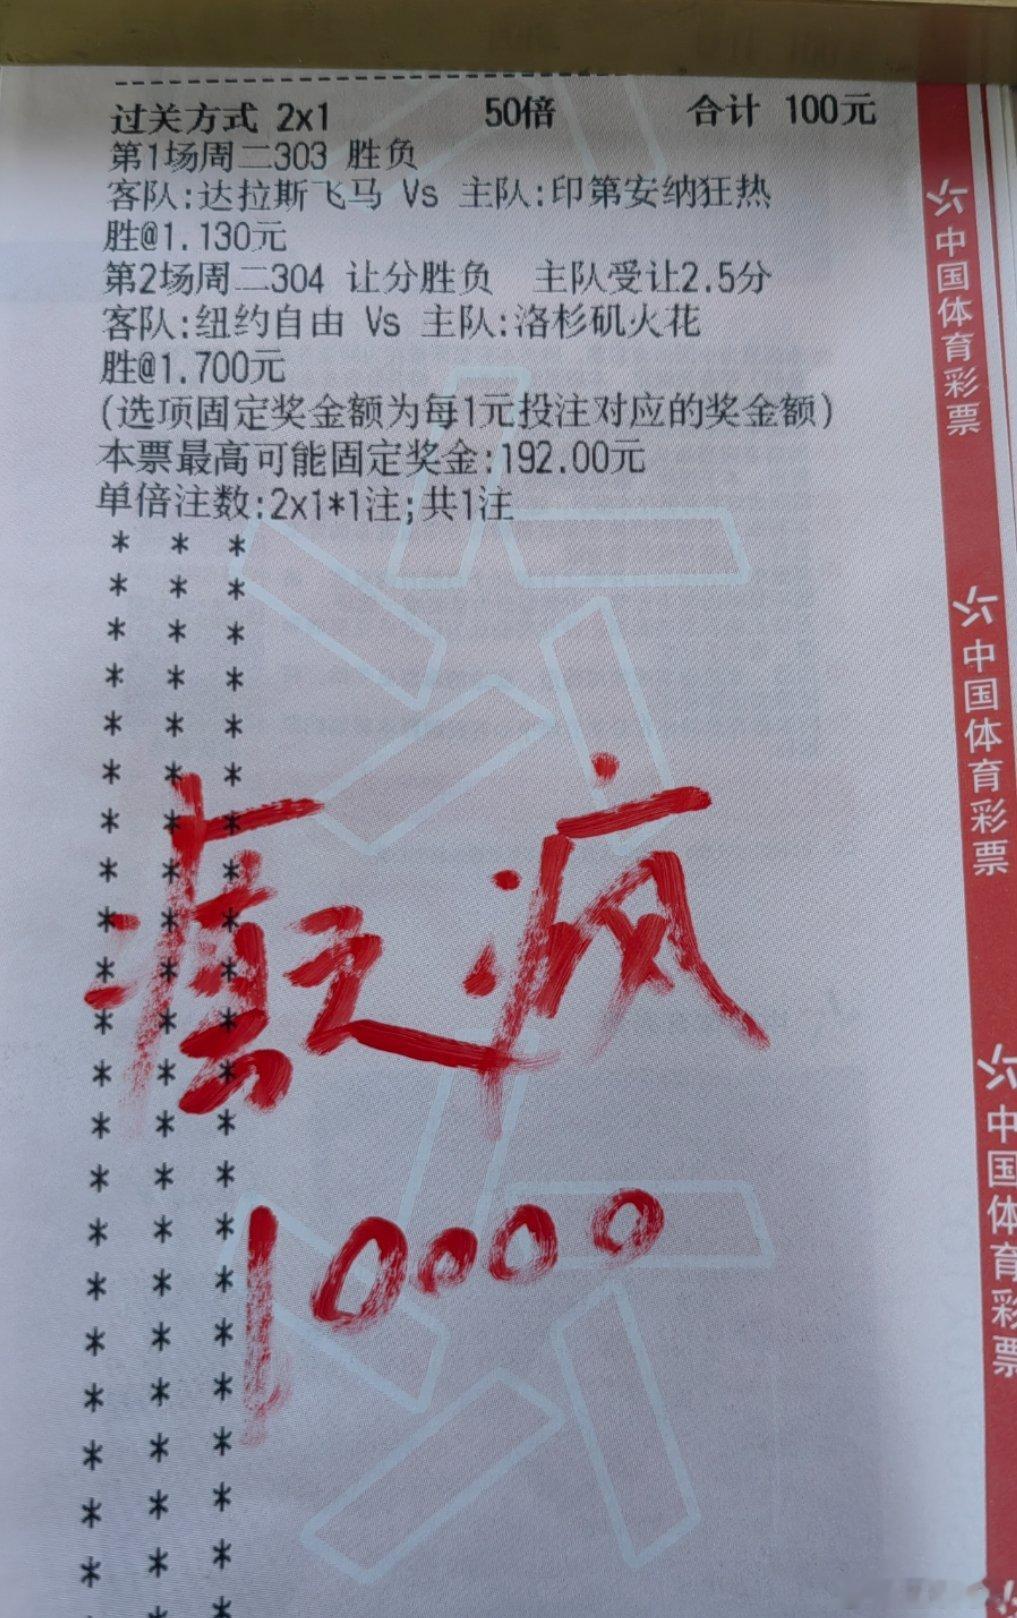 过关方式 2x1 50倍 合计 100元
第1场周二303 胜负
客队:达拉斯飞马 Vs 主队:印第安纳狂热
胜@1.130元
第2场周二304 让分胜负 主队受让2.5分
客队:纽约自由 Vs 主队:洛杉矶火花
胜@1.700元
(选项固定奖金额为每1元投注对应的奖金额)
本票最高可能固定奖金:192.00元
单倍注数:2x1*1注;共1注
之疯
10000
中国体育彩票
中国体育彩票
中国体育彩票